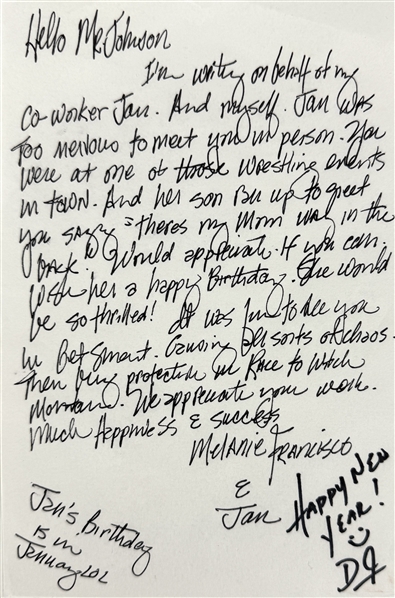 Hello Mr. Johnson
I'm writing on behalf of my
co-worker Jan. And myself. Jan was
too nervous to meet you in person. You
were at one of those wrestling events
in town. And her son ran up to greet
you saying "theres my Mom way in the
back." Would appreciate. If you can.
Wish her a happy Birthday. She would
be so thrilled! It was fun to see you
in Get Smart. Causing all sorts of chaos.
Then being protective in Race to Witch
Mountain. We appreciate your work.
Much Happiness & success
Melanie Francisco
&
Jan
Jan's Birthday
is in
January LOL
HAPPY NEW
YEAR!
DJ